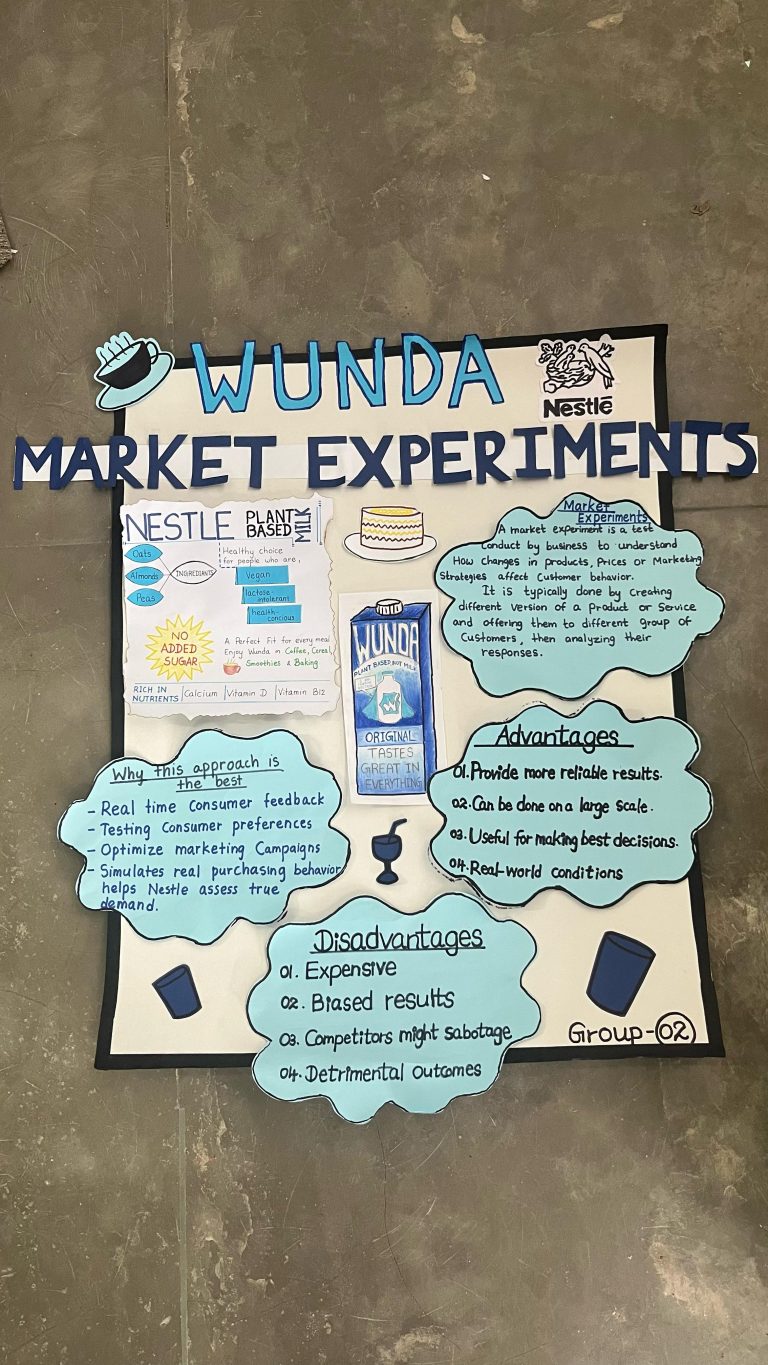 WUNDA
Nestlé
MARKET EXPERIMENTS
NESTLE PLANT BASED MILK
Oats
Almonds
Peas
INGREDIANTS
Healthy choice
for people who are,
Vegan
lactose-
intolerant
health-
concious
NO
ADDED
SUGAR
A Perfect Fit for every meal
Enjoy Wunda in Coffee, Cereal,
Smoothies & Baking
RICH IN
NUTRIENTS
Calcium
Vitamin D
Vitamin B12
WUNDA
PLANT BASED, NOT MILK
W
ORIGINAL
TASTES
GREAT IN
EVERYTHING
Market
Experiments
A market experiment is a test
conduct by business to understand
How changes in products, Prices or Marketing
Strategies affect Customer behavior.
It is typically done by creating
different version of a Product or Service
and offering them to different group of
Customers, then analyzing their
responses.
Why this approach is
the best
- Real time Consumer feedback
- Testing Consumer preferences
- Optimize marketing Campaigns
- Simulates real purchasing behavior
helps Nestle assess true
demand.
Advantages
01. Provide more reliable results.
02. Can be done on a large scale.
03. Useful for making best decisions.
04. Real-world conditions
Disadvantages
01. Expensive
02. Biased results
03. Competitors might sabotage
04. Detrimental outcomes
Group-02